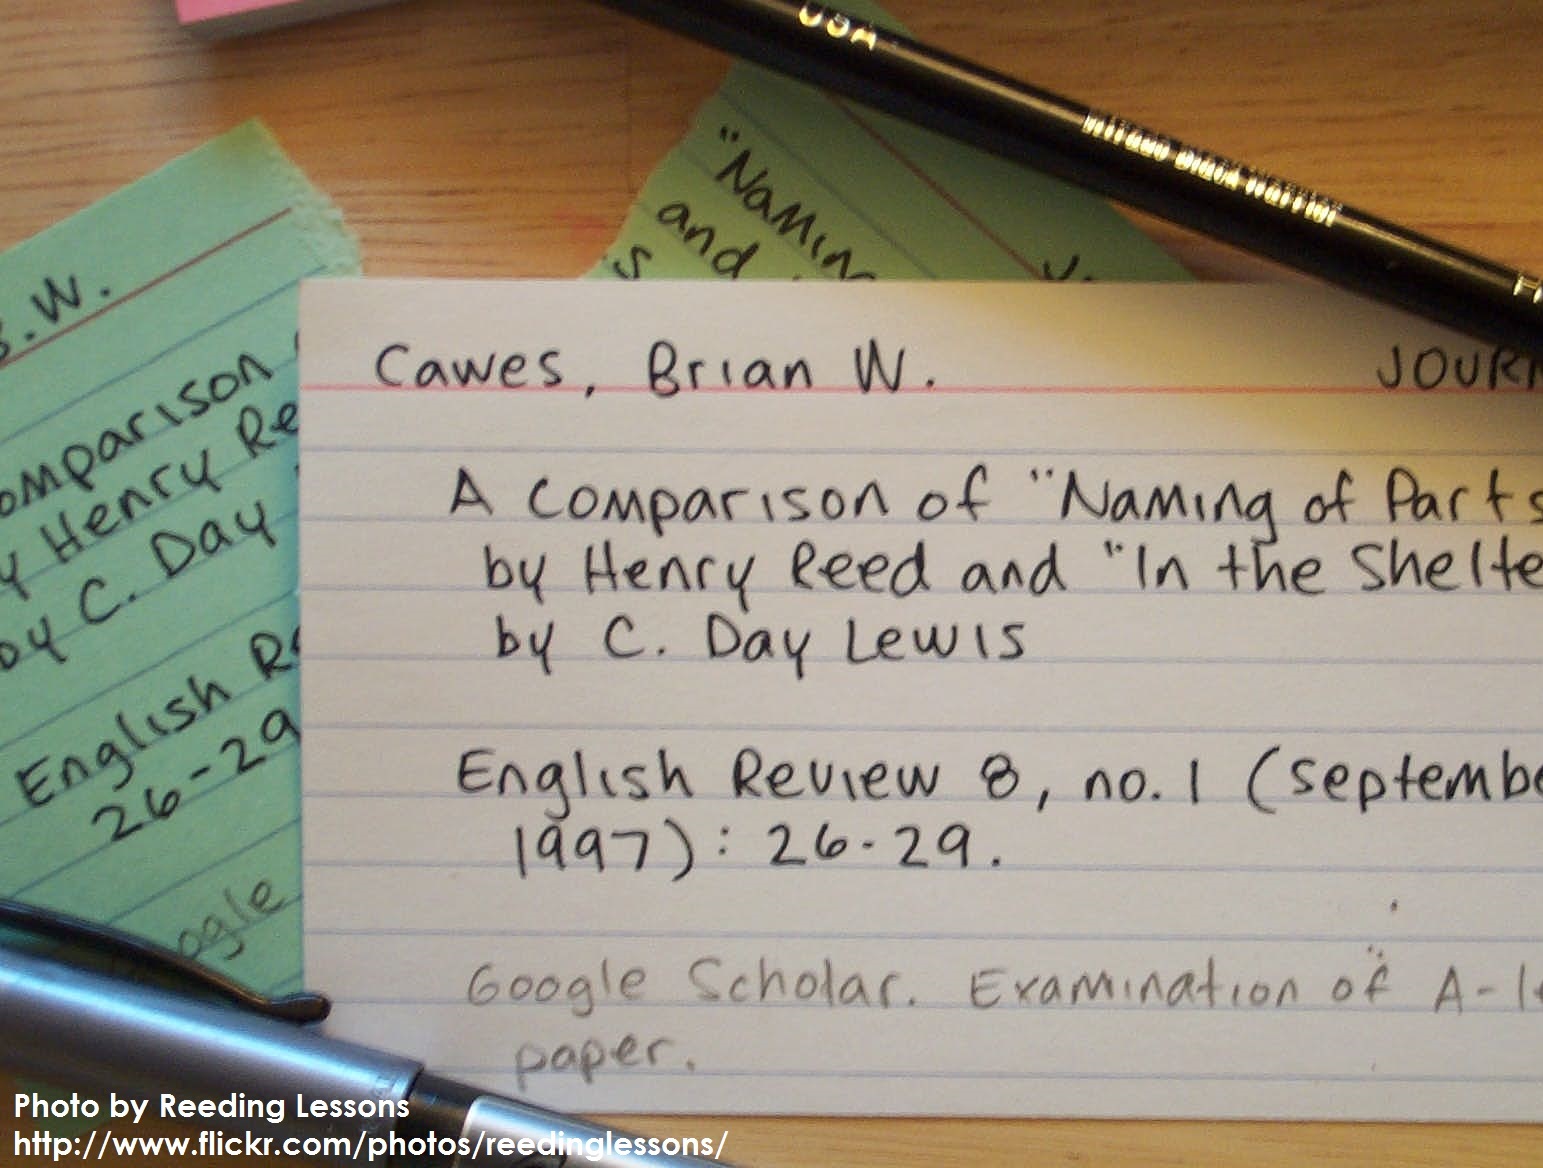 USA
Mirado Black Warrior
"Naming
and
.W.
Comparison
y Henry Re
by C. Day
English Re
26-29
ogle
Cawes, Brian W.
JOURN
A Comparison of "Naming of Parts
by Henry Reed and "In the Shelte
by C. Day Lewis
English Review 8, no. 1 (Septembe
1997): 26-29.
Google Scholar. Examination of A-le
paper.
Photo by Reeding Lessons
http://www.flickr.com/photos/reedinglessons/